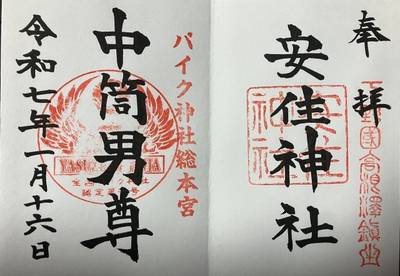 奉拝
安住神社
安住神社
下野國高根澤鎮由
バイク神社総本宮
中筒男尊
YASUZUMI JINJA
令和七年一月十六日